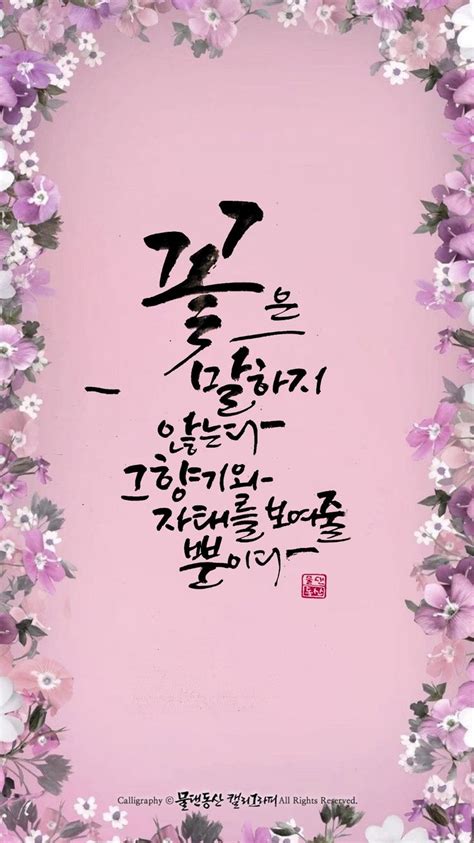 꽃은
말하지
않는다
그 향기와
자태를 보여줄
뿐이다
물댄
동산
Calligraphy © 물댄동산 캘리그라피 All Rights Reserved.